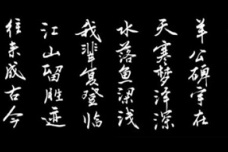 羊公碑字在
天寒梦泽深
水落鱼梁浅
我辈复登临
江山留胜迹
往来成古今